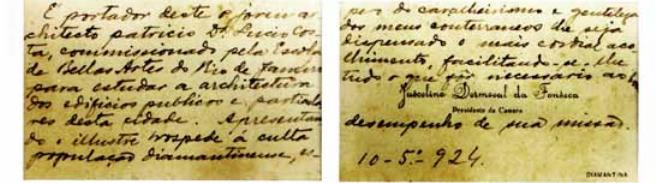 É portador deste o joven ar-
chitecto patricio Dr. Lucio Cos-
ta, commissionado pela Escola
de Bellas Artes do Rio de Janeiro
para estudar a architectura
dos edificios publicos e particula-
res desta cidade. Apresentan-
do o illustre hospede á culta
população diamantinense, es-
pero do cavalheirismo e gentileza
dos meus conterraneos lhe seja
dispensado o mais cordial aco-
lhimento, facilitando-se-lhe
tudo o que fôr necessario ao
Juscelino Dermeval da Fonseca
Presidente da Camara
desempenho de sua missão.
10-5º-924.
DIAMANTINA